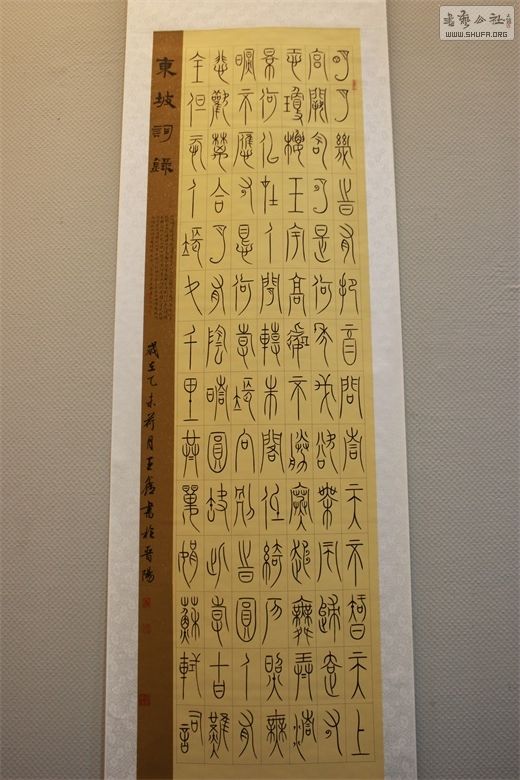 明月幾時有把酒問青天不知天上
宮闕今夕是何年我欲乘風歸去又
恐瓊樓玉宇高處不勝寒起舞弄清
影何似在人間轉朱閣低綺戶照無
眠不應有恨何事長向別時圓人有
悲歡離合月有陰晴圓缺此事古難
全但願人長久千里共嬋娟蘇軾詞
東坡詞錄
歲在乙未荷月王書於晉陽
書藝公社
WWW.SHUFA.ORG